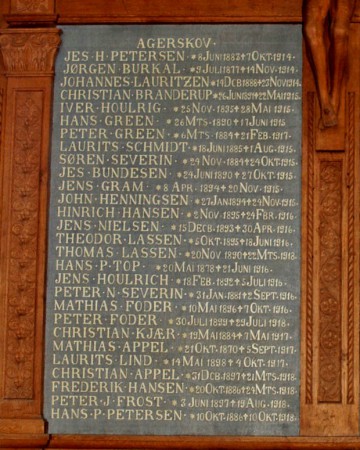 AGERSKOV
JES·H·PETERSEN·*8JUNI1883†7OKT·1914·
JØRGEN·BURKAL·*9JULI1877†14NOV·1914·
JOHANNES·LAURITZEN·*14DCB1888†23NOV1914·
CHRISTIAN·BRANDERUP·*26JUNI1891†22MAI1915·
IVER·HOULRIG·*25NOV·1893†28MAI·1915·
HANS·GREEN·*26MTS·1890†17JUNI1915·
PETER·GREEN·*6MTS·1884†21FEB·1917·
LAURITS·SCHMIDT·*18JUNI1885†1AUG·1915·
SØREN·SEVERIN·*24NOV·1884†24OKT·1915·
JES·BUNDESEN·*24JUNI1890†27OKT·1915·
JENS·GRAM·*8APR·1894†20NOV·1915·
JOHN·HENNINGSEN·*27JAN1894†24NOV1915·
HINRICH·HANSEN·*2NOV·1895†24FBR·1916·
JENS·NIELSEN·*15DECB·1893†30APR·1916·
THEODOR·LASSEN·*5OKT·1895†18JUNI1916·
THOMAS·LASSEN·*20NOV·1890†22MTS·1918·
HANS·P·TOP·*20MAI1878†21JUNI·1916·
JENS·HOULRICH·*18FEB·1892†5JULI·1916·
PETER·N·SEVERIN·*31JAN·1881†2SEPT·1916·
MATHIAS·FODER·*10MAI1896†7OKT·1916·
PETER·FODER·*30JULI1899†29JULI1918·
CHRISTIAN·KJÆR·*19MAI1884†7MAI1917·
MATHIAS·APPEL·*21OKT·1870†5SEPT·1917·
LAURITS·LIND·*14MAI1898†4OKT·1917·
CHRISTIAN·APPEL·*31DCB·1897†21MTS·1918·
FREDERIK·HANSEN·*20OKT·1886†24MTS·1918·
PETER·J·FROST·*3JUNI1897†19AUG·1918·
HANS·P·PETERSEN·*10OKT·1886†10OKT·1918·